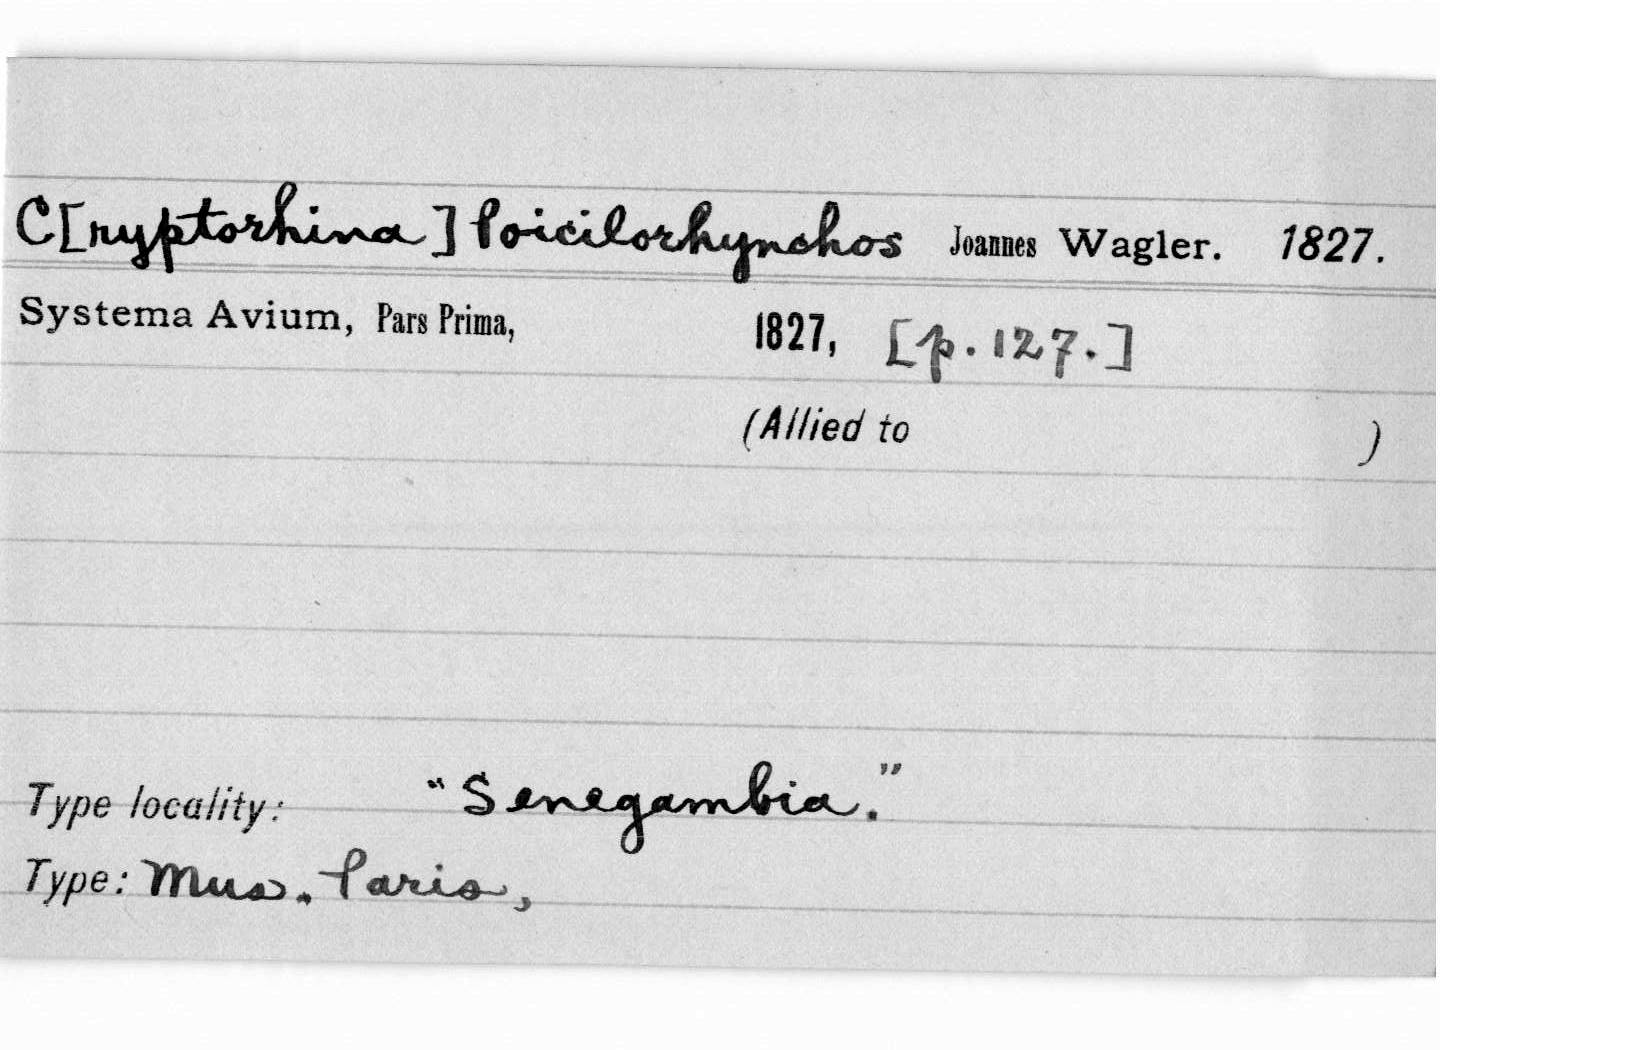 C[ryptorhina] Poicilorhynchos Joannes Wagler. 1827.
Systema Avium, Pars Prima, 1827, [p. 127.]
(Allied to )
Type locality: "Senegambia."
Type: Mus. Paris,